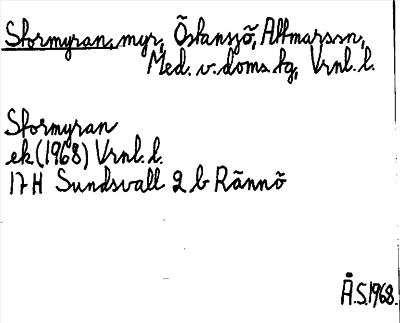 Stormyran, myr, Östansjö, Attmarssn,
Med. v. doms. tg, Vrnl. l.
Stormyran
ek (1968) Vrnl. l.
17 H Sundsvall 2 b Rännö
Å.S. 1968.